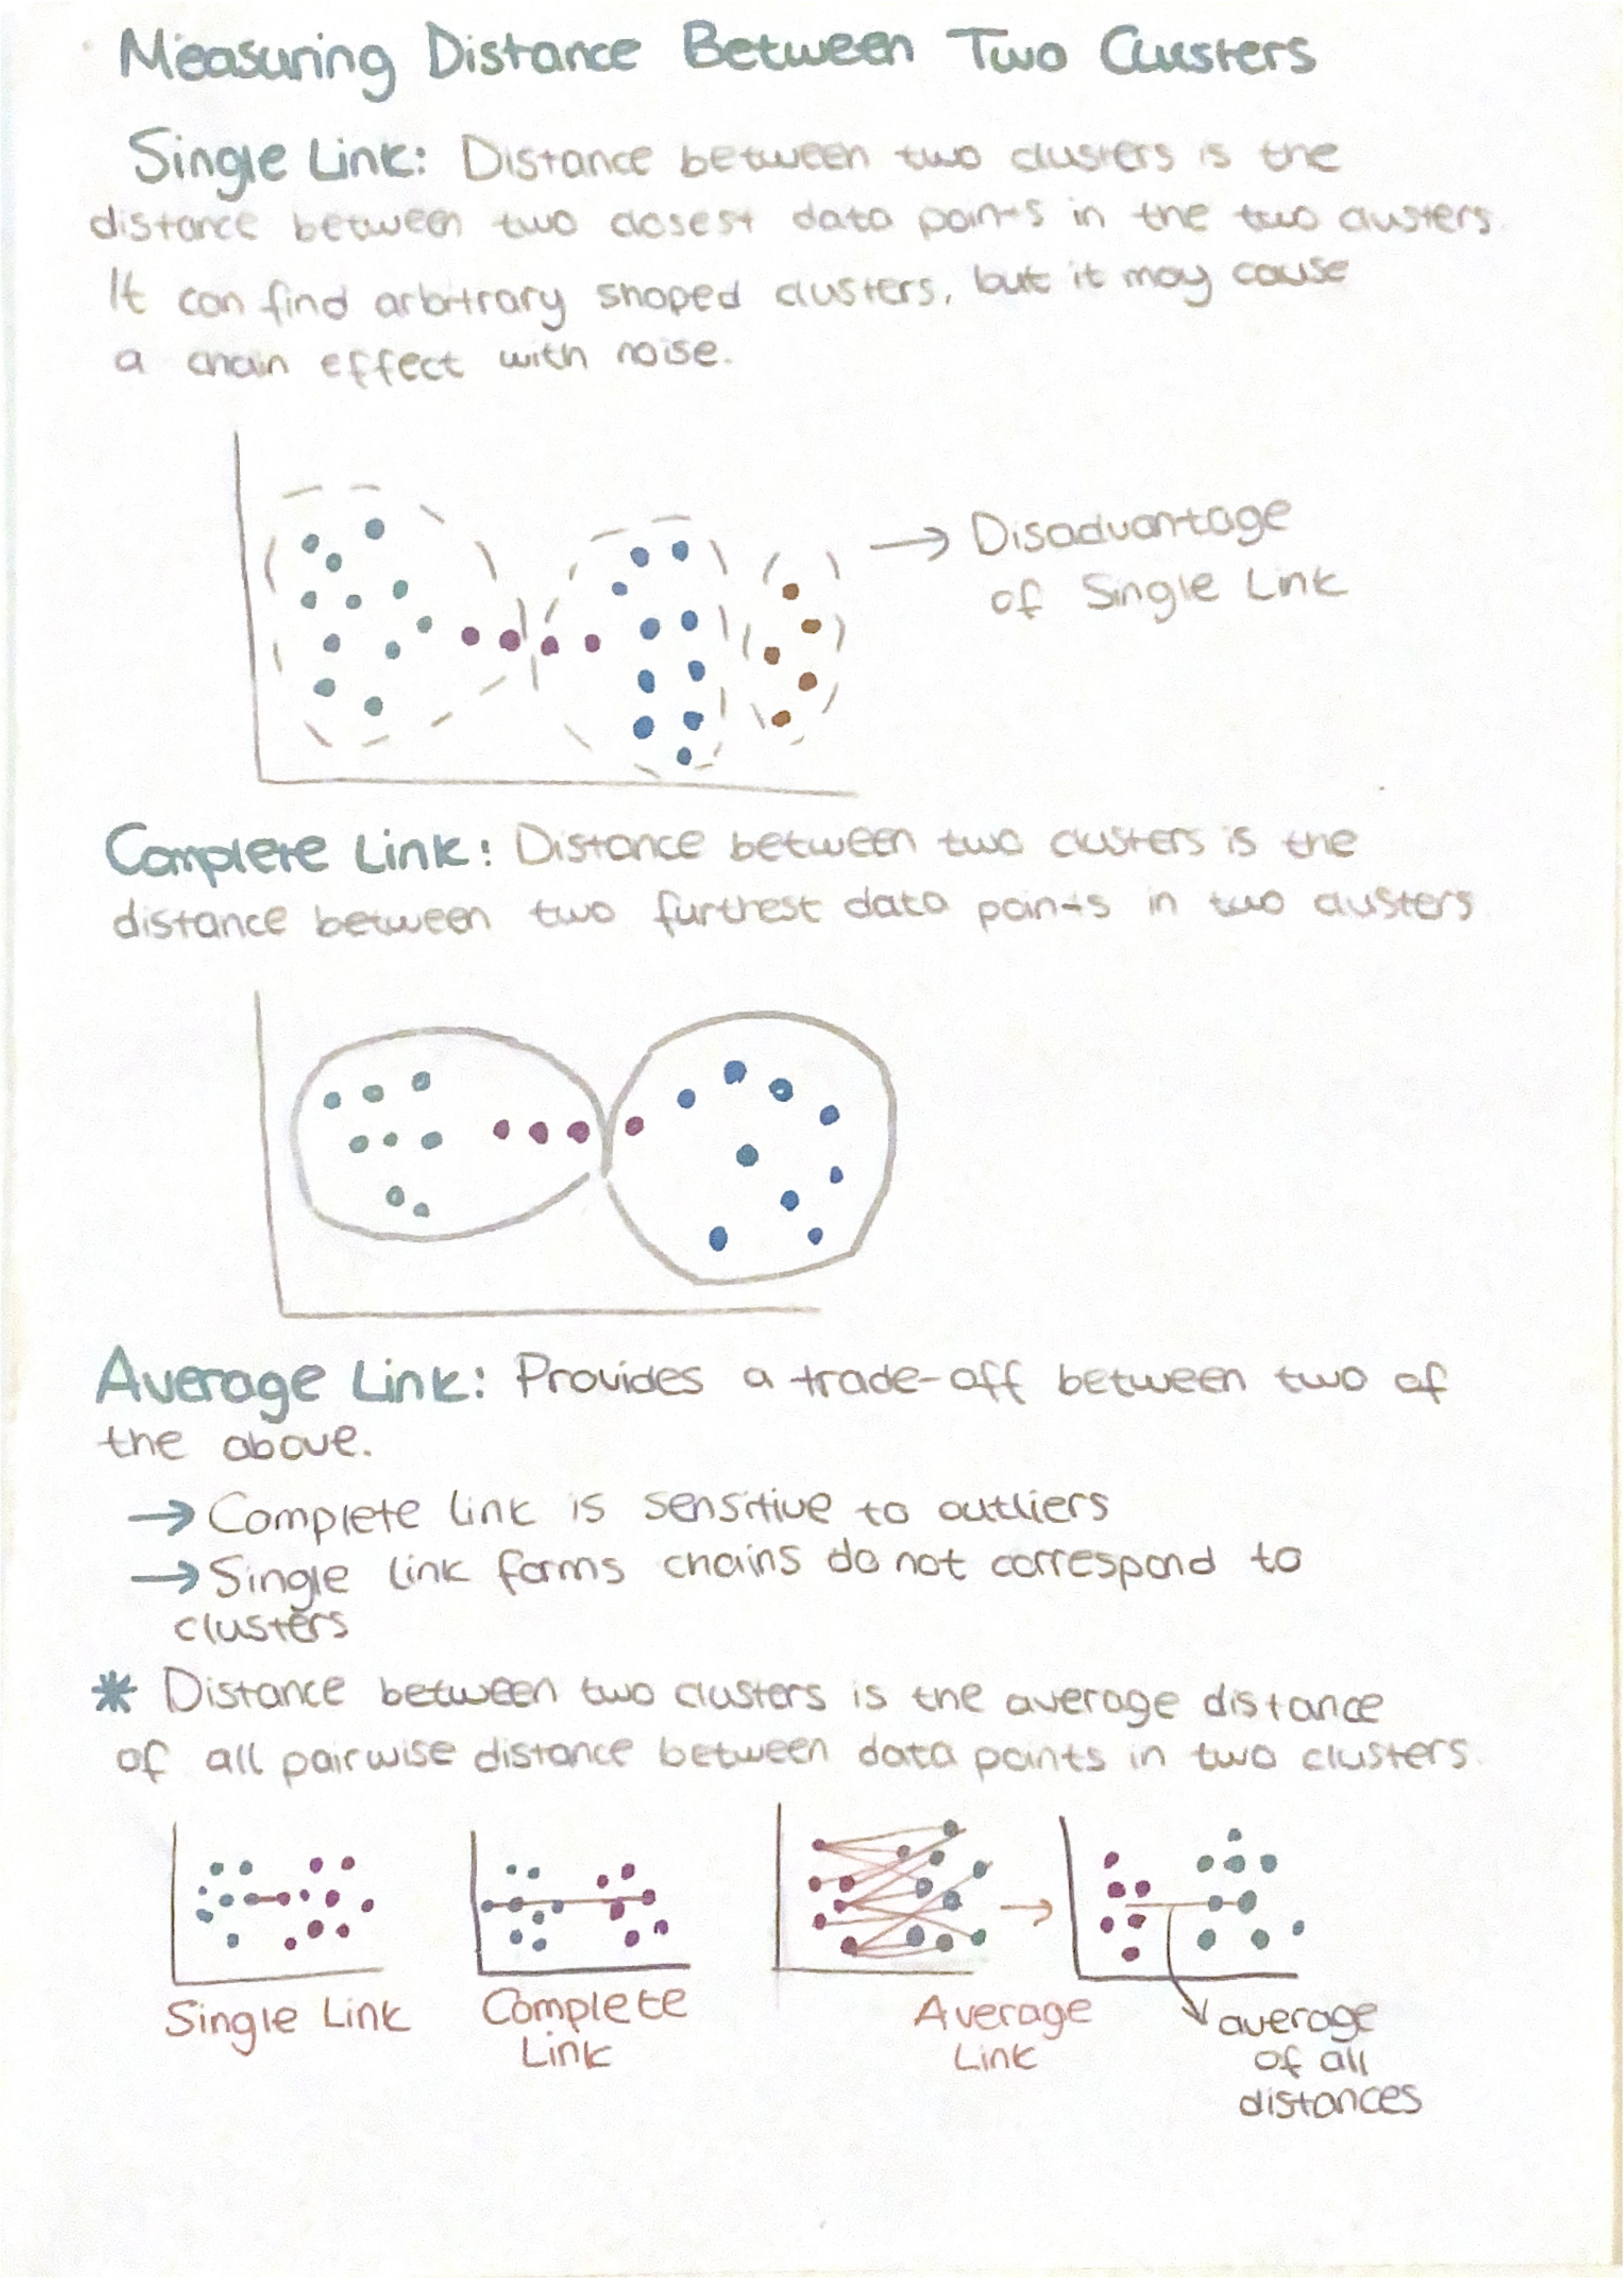 Measuring Distance Between Two Clusters
Single Link: Distance between two clusters is the
distance between two closest data points in the two clusters.
It can find arbitrary shaped clusters, but it may cause
a chain effect with noise.
→ Disadvantage
of Single Link
Complete Link: Distance between two clusters is the
distance between two furthest data points in two clusters
Average Link: Provides a trade-off between two of
the above.
→ Complete link is sensitive to outliers
→ Single link forms chains do not correspond to
clusters
* Distance between two clusters is the average distance
of all pairwise distance between data points in two clusters.
Single Link
Complete
Link
Average
Link
average
of all
distances